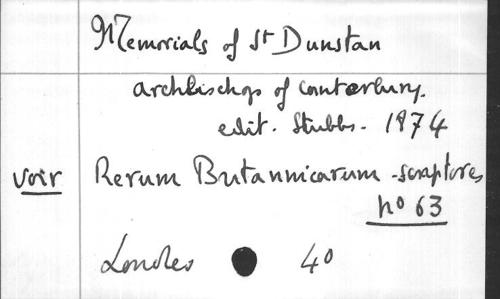 Memorials of St Dunstan
archbischop of Canterbury.
edit. Stubbs. 1874
voir Rerum Britannicarum - scriptores
no 63
Londres 4o